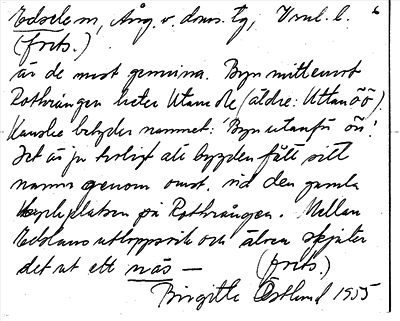 Edselem, Ång. v. dom. tg, Vnl. l. 6
(forts.)
är de mest genuina. Byn mittemot
Rothrången heter Utanede (äldre: Uttanöö).
Kanske betyder namnet: 'Byn utanför ön'!
Det är ju troligt att bygden fått sitt
namn genom omst. vid den gamla
kyrkplatsen på Rothrången. Mellan
Edslans utloppsvik och älven skjuter
det ut ett näs — (forts.)
Birgitta Östlund 1955